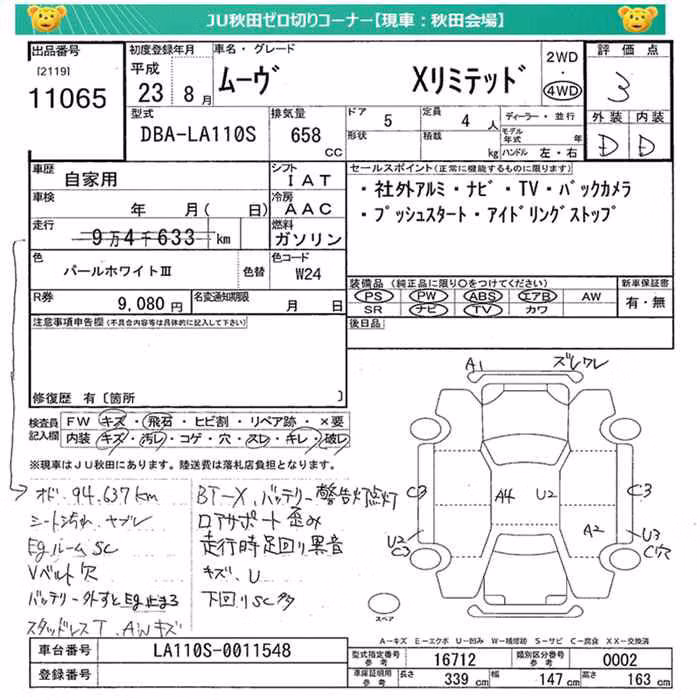 JU秋田ゼロ切りコーナー【現車：秋田会場】
出品番号
[2119]
11065
初度登録年月
平成
23 8月
車名・グレード
ムーヴ Xリミテッド
2WD
・
4WD
評価点
3
外装 内装
D D
型式
DBA-LA110S
排気量
658
CC
ドア 5
形状
定員 4 人
積載 kg
ディーラー・並行
モデル年式 年
ハンドル 左・右
車歴
自家用
シフト
IAT
車検
年 月( 日)
冷房
AAC
走行
9万4千633 km
燃料
ガソリン
色
パールホワイトⅢ
色替
色コード
W24
R券
9,080円
名変通知期限
月 日
セールスポイント(正常に機能するものに限ります)
・社外アルミ・ナビ・TV・バックカメラ
・プッシュスタート・アイドリングストップ
装備品(純正品に限り○をつけてください)
PS PW ABS エアB AW
SR ナビ TV カワ
新車保証書
有・無
後日品
注意事項申告欄(不具合内容等は具体的に記入して下さい)
修復歴 有〔箇所 〕
検査員記入欄
FW キズ・飛石・ヒビ割・リペア跡・×要
内装 キズ・汚レ・コゲ・穴・スレ・キレ・破レ
※現車はJU秋田にあります。陸送費は落札店負担となります。
オド 94.637km
Egルームsc
Vベルト穴
バッテリー外すとEg止まる
スタッドレスT.AWキズ
BT-X.バッテリー警告灯点灯
ロアサポート歪み
走行時足回り異音
キズ、U
下回りsc多
A1 ズレワレ
C3
A4
U2
C3
U2
C3
A2
U3
C穴
スペア
A－キズ E－エクボ U－凹み W－補修跡 S－サビ C－腐食 XX－交換済
車台番号
LA110S-0011548
登録番号
型式指定番号
参考
16712
類別区分番号
参考
0002
車庫証明用
参考
長さ 339cm
幅 147cm
高さ 163cm